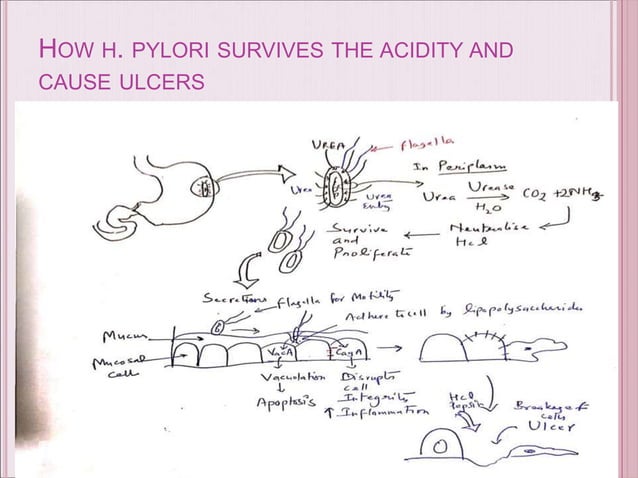 HOW H. PYLORI SURVIVES THE ACIDITY AND
CAUSE ULCERS
UREA
Flagella
In Periplasm
Urea
Urea
Entry
Urea Urease CO2 + 2NH3
H2O
Neutralise
HCl
Survive
and
Proliferate
Secretions
Flagella for Motility
Adhere to cell by lipopolysaccharide
Mucus
Mucosal
cell
VacA
CagA
Vacuolation
Apoptosis
Disrupts
cell
Integrity
↑ Inflammation
HCl
Pepsin
Breakage of
cells
Ulcer